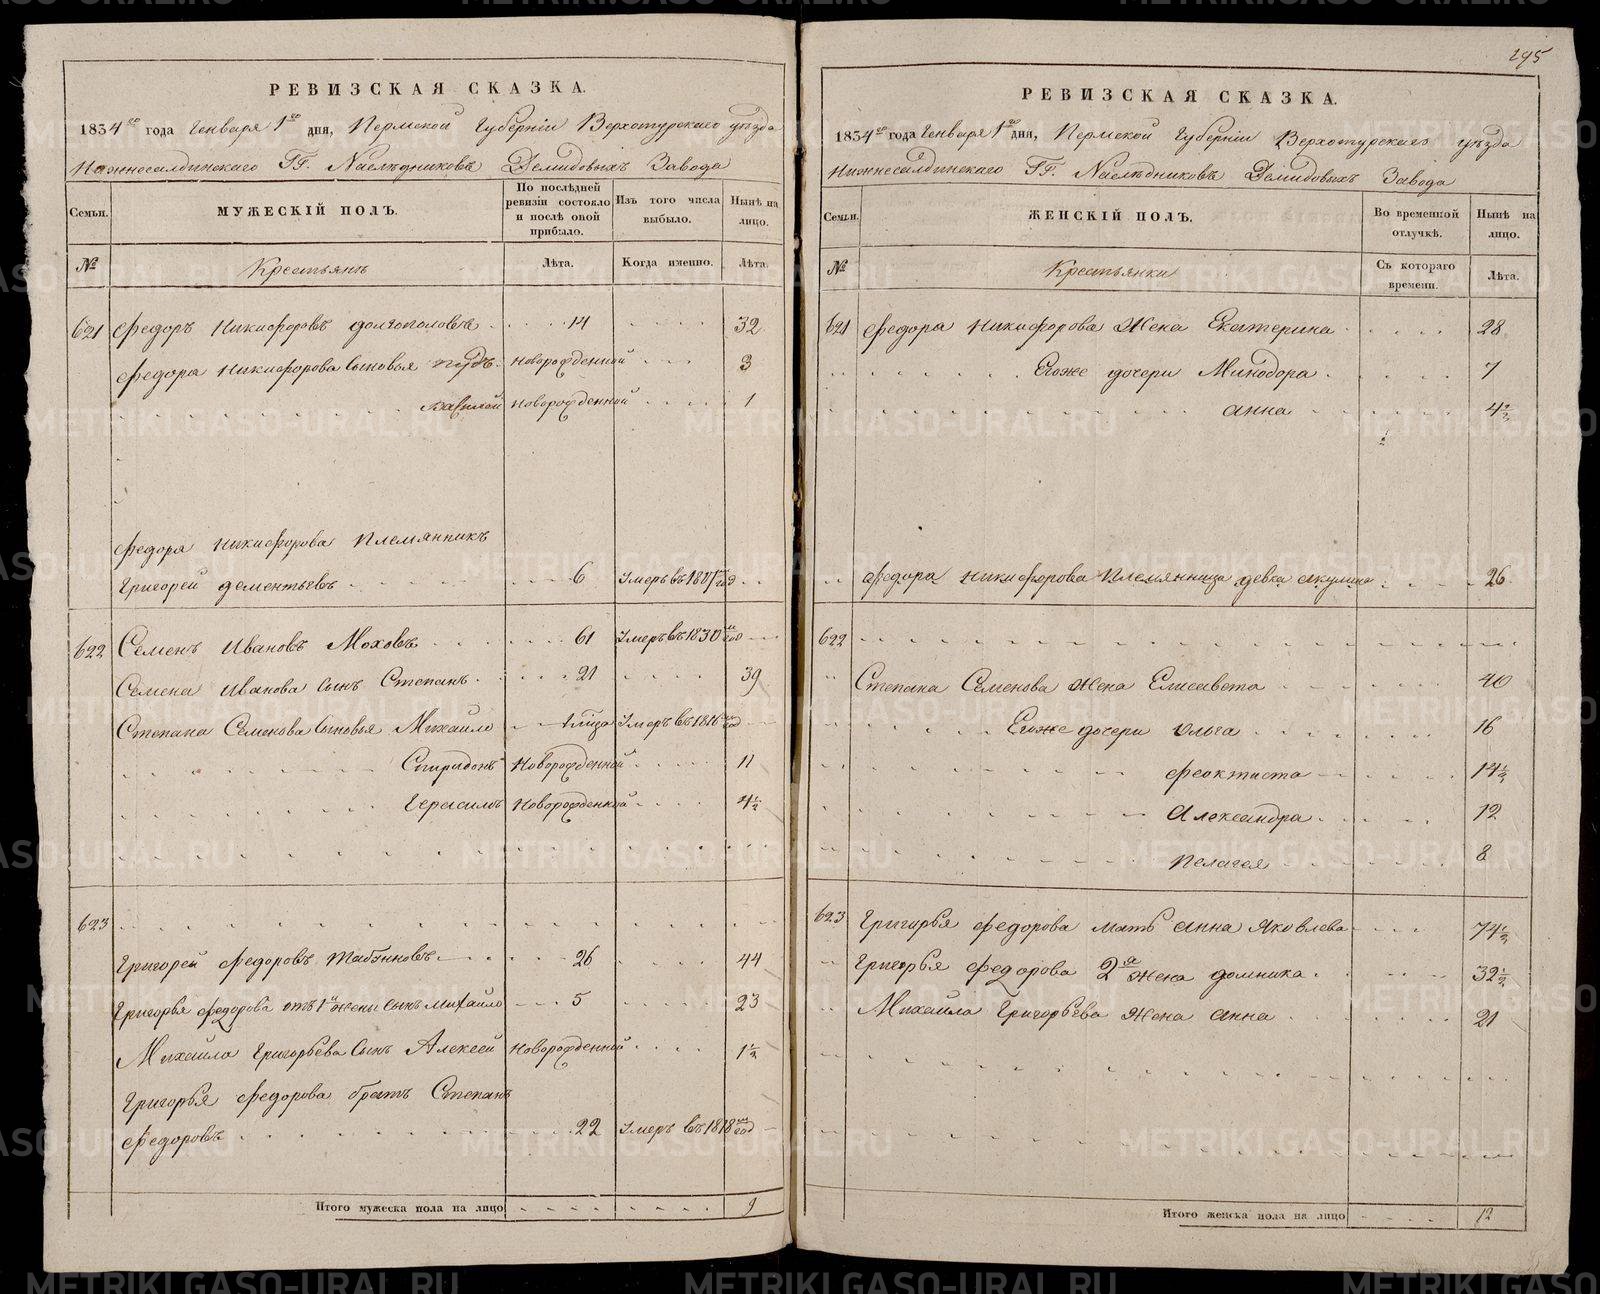 РЕВИЗСКАЯ СКАЗКА.
1834го года Генваря 1го дня, Пермской Губерніи Верхотурскаго уезда
Нижнесалдинскаго ГГ. Наследниковъ Демидовыхъ Завода
Семьи. МУЖЕСКІЙ ПОЛЪ. По послѣдней ревизіи состояло и послѣ оной прибыло. Изъ того числа выбыло. Нынѣ на лицо.
№ Крестьянъ Лѣта. Когда именно. Лѣта.
621 Федоръ Никифоровъ Долгополовъ 14 32
Федора Никифорова сыновья новорожденной 3
Вавилой новорожденной 1
Федора Никифорова племянникъ
Григорей Дементьевъ 6 Умеръ въ год
622 Семенъ Ивановъ Моховъ 61 Умеръ въ 1830м год
Семена Иванова сынъ Степанъ 21 39
Степана Семенова сыновья Михайло Умеръ въ 1816м год
Спиридонъ Новорожденной 11
Герасимъ Новорожденной 4½
623
Григорей Федоровъ Табунновъ 26 44
Григорья Федорова отъ 1й жены сынъ Михайло 5 23
Михайла Григорьева сынъ Алексей новорожденной 1½
Григорья Федорова братъ Степанъ
Федоровъ 22 Умеръ въ 1818м год
Итого мужеска пола на лицо 9
295
РЕВИЗСКАЯ СКАЗКА.
1834го года Генваря 1го дня, Пермской Губерніи Верхотурскаго уезда
Нижнесалдинскаго ГГ. Наследниковъ Демидовыхъ Завода
Семьи. ЖЕНСКІЙ ПОЛЪ. Во временной отлучкѣ. Нынѣ на лицо.
№ Крестьянки Съ котораго времени. Лѣта.
621 Федора Никифорова жена Екатерина 28
Егоже дочери Минодора 7
Анна 4½
Федора Никифорова племянница девка Акулина 26
622
Степана Семенова жена Елисавета 40
Егоже дочери Ольга 16
Феоктиста 14½
Александра 12
Пелагея 8
623 Григорья Федорова мать Анна Яковлева 74½
Григорья Федорова 2я жена Домника 32½
Михайла Григорьева жена Анна 21
Итого женска пола на лицо 12
METRIKI.GASO-URAL.RU